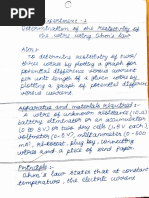 Experiment - 1
Determination of the Resistivity of
a wire using Ohm's law
Aim :-
To determine resistivity of two/
three wires by plotting a graph for
potential difference versus current
per unit length of a given wire by
plotting a graph of potential
difference versus current.
Apparatus and materials Required :-
A wire of unknown resistance (10Ω)
battery eliminator or an accumulator
(0 to 3V) or two dry cells (1.5 V each)
voltmeter (0-5)V, milliammeter (0-500mA)
rheostat, plug key, connecting
wires and a piece of sand paper
Principle :-
Ohm's law states that at constant
temperature, the electric current